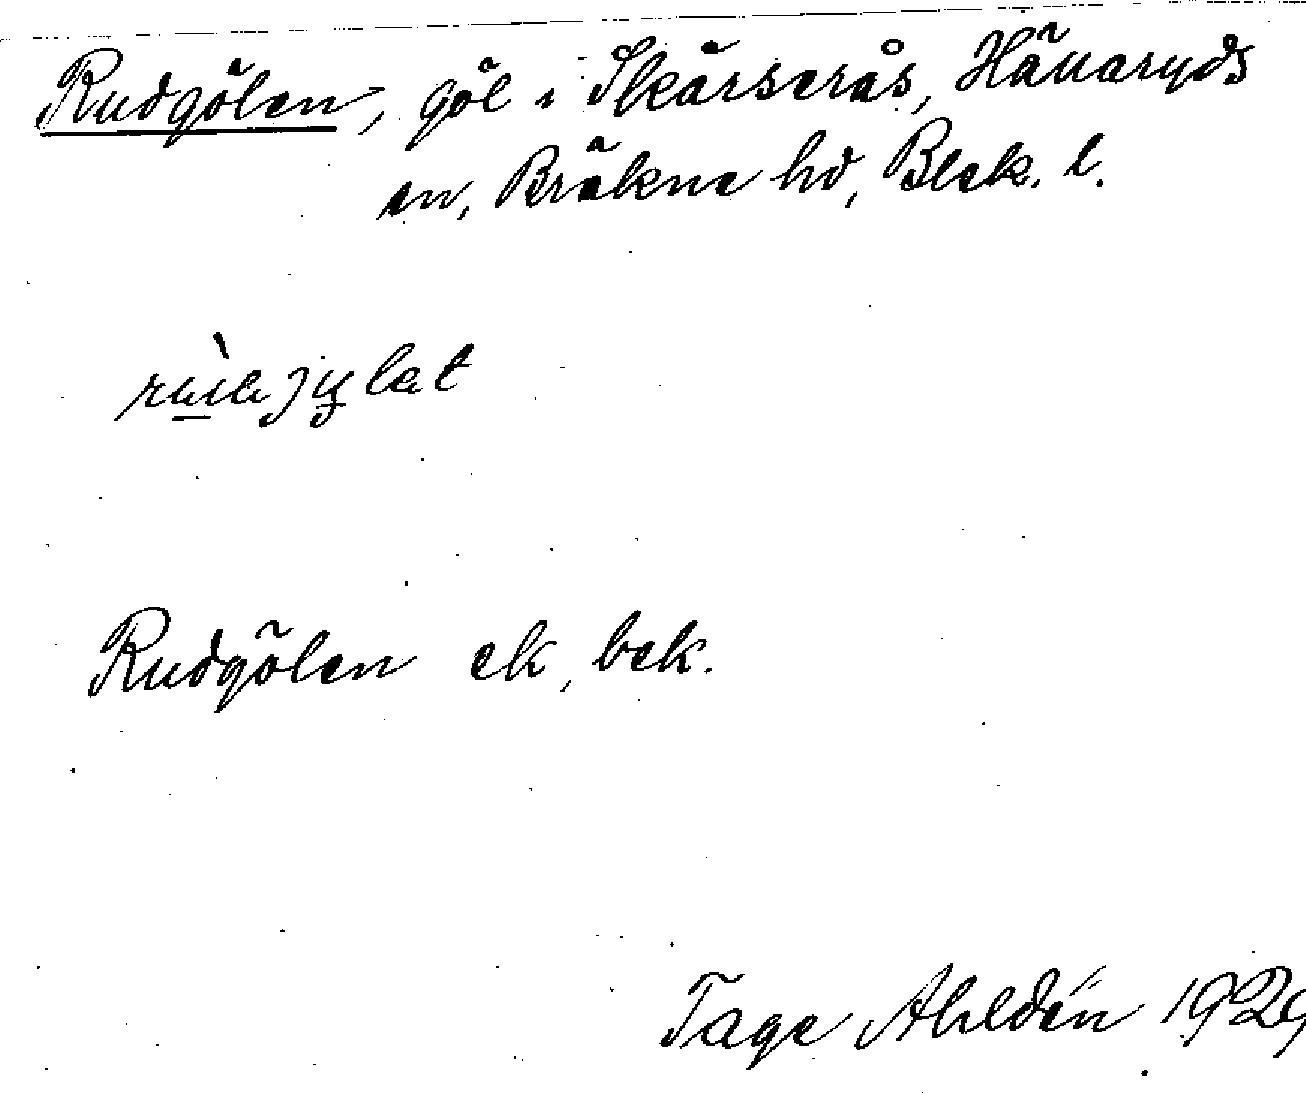 Rudgölen, göl i Skärserås, Hällaryds
sn, Bräkne hd, Blek. l.
Rudgölen ek, bek.
Tage Ahldén 1929